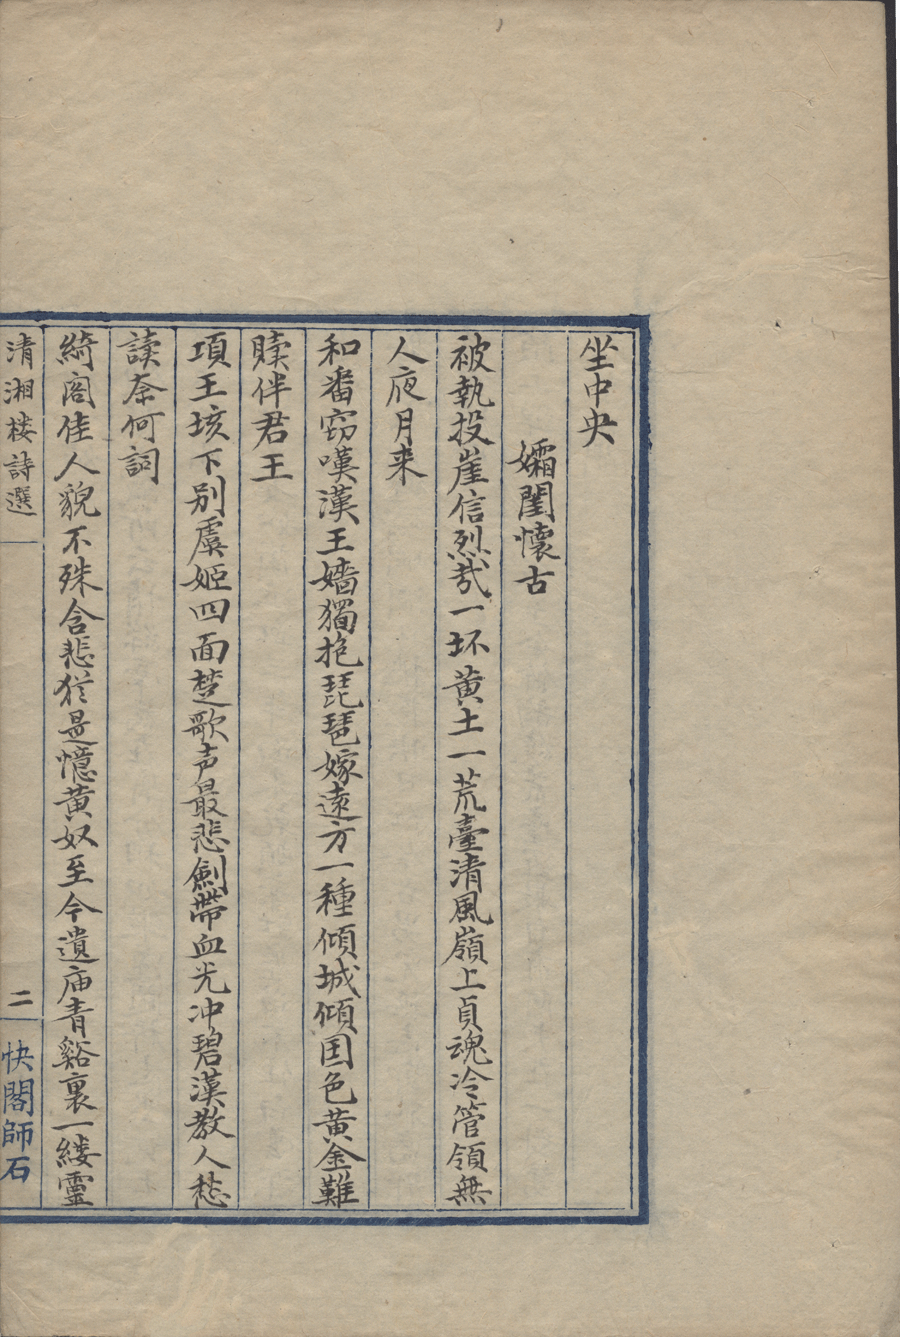 坐中央
孀閨懷古
被執投崖信烈哉一坏黄土一荒臺清風嶺上貞魂冷管領無
人夜月来
和番窃嘆漢王嬙獨抱琵琶嫁遠方一種傾城傾国色黄金難
贖伴君王
項王垓下别虞姬四面楚歌声最悲劍帶血光冲碧漢教人愁
讀奈何詞
綺閣佳人貌不殊含悲犹是憶黄奴至今遺庙青谿裏一缕靈
清湘楼詩選
二
快閣師石